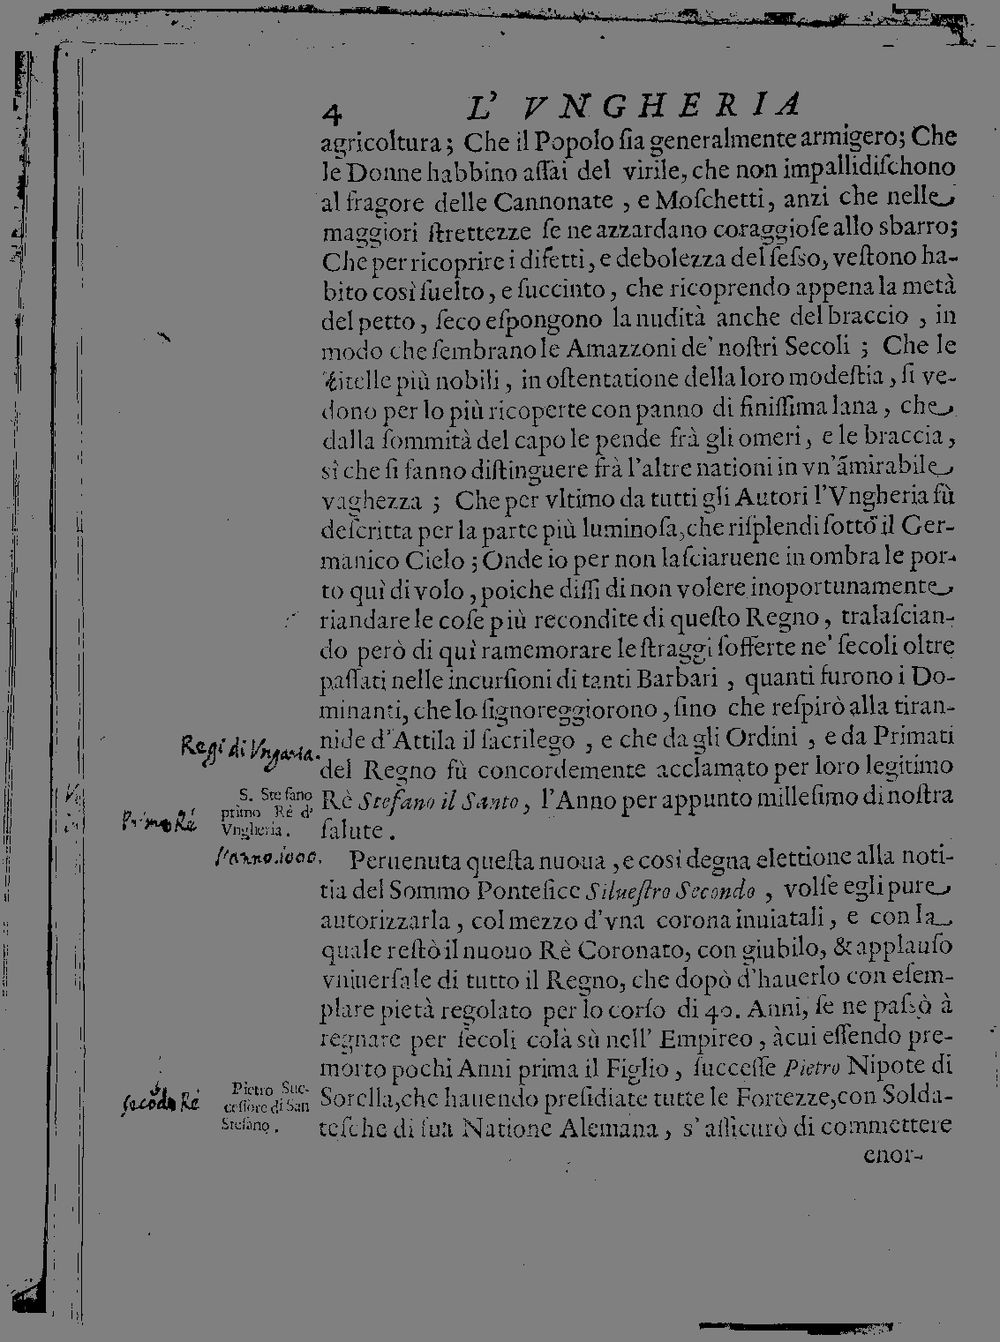 4 L' VNGHERIA
agricoltura; Che il Popolo ſia generalmente armigero; Che
le Donne habbino aſſai del virile, che non impallidiſchono
al fragore delle Cannonate, e Moſchetti, anzi che nelle
maggiori ſtrettezze ſe ne azzardano coraggioſe allo sbarro;
Che per ricoprire i difetti, e debolezza del ſeſso, veſtono ha-
bito così ſuelto, e ſuccinto, che ricoprendo appena la metà
del petto, ſeco eſpongono la nudità anche del braccio, in
modo che ſembrano le Amazzoni de' noſtri Secoli; Che le
Zitelle più nobili, in oſtentatione della loro modeſtia, ſi ve-
dono per lo più ricoperte con panno di finiſſima lana, che
dalla ſommità del capo le pende frà gli omeri, e le braccia,
sì che ſi fanno diſtinguere frà l'altre nationi in vn'ãmirabile
vaghezza; Che per vltimo da tutti gli Autori l'Vngheria fù
deſcritta per la parte più luminoſa, che riſplendi ſotto il Ger-
manico Cielo; Onde io per non laſciaruene in ombra le por-
to quì di volo, poiche diſſi di non volere inoportunamente
riandare le coſe più recondite di queſto Regno, tralaſcian-
do però di quì ramemorare le ſtraggi ſofferte ne' ſecoli oltre
paſſati nelle incurſioni di tanti Barbari, quanti furono i Do-
minanti, che lo ſignoreggiorono, ſino che reſpirò alla tiran-
nide d'Attila il ſacrilego, e che da gli Ordini, e da Primati
del Regno fù concordemente acclamato per loro legitimo
Rè Stefano il Santo, l'Anno per appunto milleſimo di noſtra
ſalute.
Regi di Vngaria.
S. Stefano
primo Rè d'
Vngheria.
Primo Ré
l'anno. 1000.
Peruenuta queſta nuoua, e così degna elettione alla noti-
tia del Sommo Ponteſice Silueſtro Secondo, volſe egli pure
autorizzarla, col mezzo d'vna corona inuiatali, e con la
quale reſtò il nuouo Rè Coronato, con giubilo, & applauſo
vniuerſale di tutto il Regno, che dopò d'hauerlo con eſem-
plare pietà regolato per lo corſo di 40. Anni, ſe ne paſsò à
regnare per ſecoli colà sù nell' Empireo, à cui eſſendo pre-
morto pochi Anni prima il Figlio, ſucceſſe Pietro Nipote di
Sorella, che hauendo preſidiate tutte le Fortezze, con Solda-
teſche di ſua Natione Alemana, s' aſſicurò di commettere
Pietro Suc-
ceſſore di San
Stefano.
ſecõdo Ré
enor-